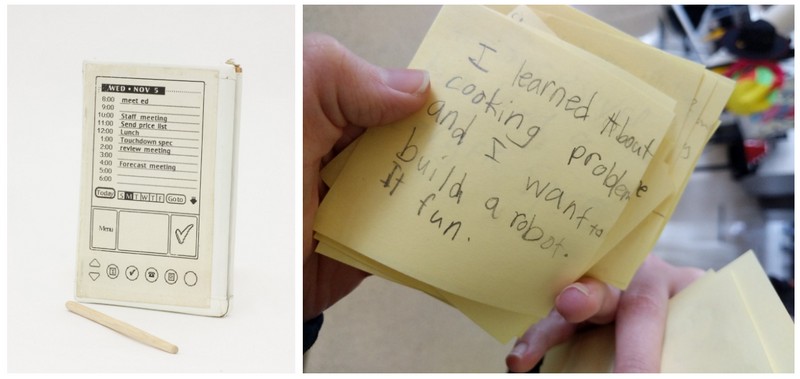 WED • NOV 5
8:00 meet ed
9:00
10:00 Staff meeting
11:00 Send price list
12:00 Lunch
1:00 Touchdown spec
2:00 review meeting
3:00
4:00 Forecast meeting
5:00
6:00
Today S M T W T F Go to
Menu
I learned About
cooking problem
and I want to
build a robot.
It fun.